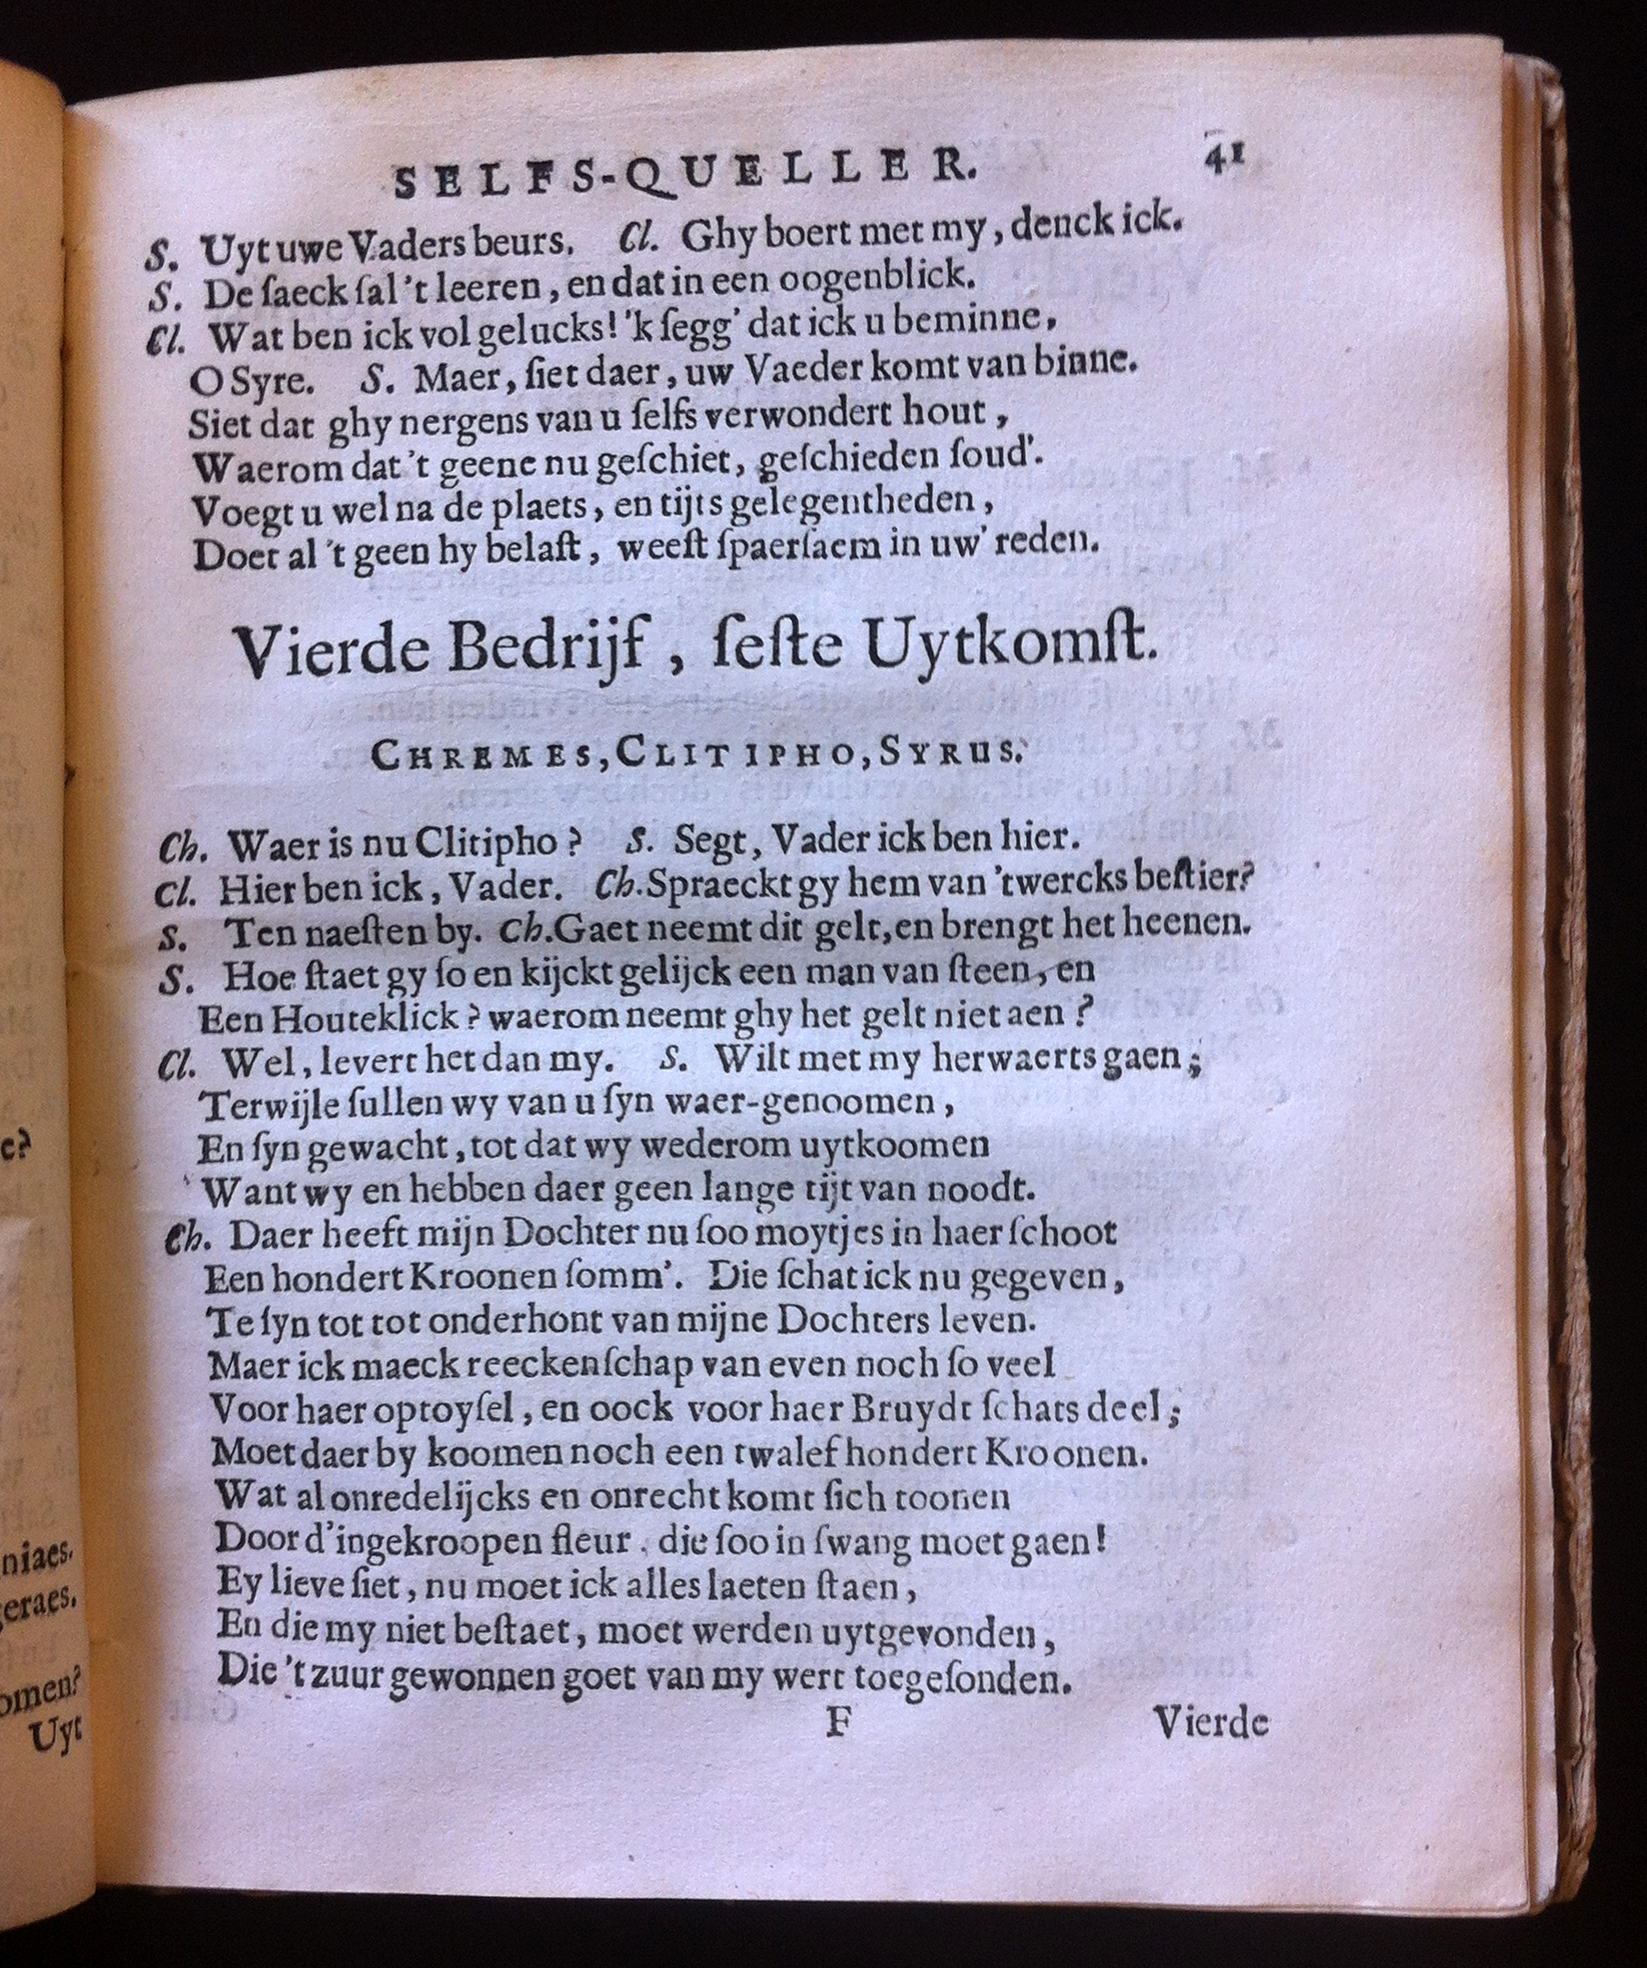 SELFS-QUELLER. 41
S. Uyt uwe Vaders beurs. Cl. Ghy boert met my, denck ick.
S. De ſaeck ſal 't leeren, en dat in een oogenblick.
Cl. Wat ben ick vol gelucks! 'k ſegg' dat ick u beminne,
O Syre. S. Maer, ſiet daer, uw Vaeder komt van binne.
Siet dat ghy nergens van u ſelfs verwondert hout,
Waerom dat 't geene nu geſchiet, geſchieden ſoud'.
Voegt u wel na de plaets, en tijts gelegentheden,
Doet al 't geen hy belaſt, weeſt ſpaerſaem in uw' reden.
Vierde Bedrijf, ſeſte Uytkomſt.
CHREMES, CLITIPHO, SYRUS.
Ch. Waer is nu Clitipho? S. Segt, Vader ick ben hier.
Cl. Hier ben ick, Vader. Ch. Spraeckt gy hem van 'twercks beſtier?
S. Ten naeſten by. Ch. Gaet neemt dit gelt, en brengt het heenen.
S. Hoe ſtaet gy ſo en kijckt gelijck een man van ſteen, en
Een Houteklick? waerom neemt ghy het gelt niet aen?
Cl. Wel, levert het dan my. S. Wilt met my herwaerts gaen;
Terwijle ſullen wy van u ſyn waer-genoomen,
En ſyn gewacht, tot dat wy wederom uytkoomen
Want wy en hebben daer geen lange tijt van noodt.
Ch. Daer heeft mijn Dochter nu ſoo moytjes in haer ſchoot
Een hondert Kroonen ſomm'. Die ſchat ick nu gegeven,
Te ſyn tot tot onderhont van mijne Dochters leven.
Maer ick maeck reeckenſchap van even noch ſo veel
Voor haer optoyſel, en oock voor haer Bruydt ſchats deel;
Moet daer by koomen noch een twalef hondert Kroonen.
Wat al onredelijcks en onrecht komt ſich toonen
Door d'ingekroopen fleur, die ſoo in ſwang moet gaen!
Ey lieve ſiet, nu moet ick alles laeten ſtaen,
En die my niet beſtaet, moet werden uytgevonden,
Die 't zuur gewonnen goet van my wert toegeſonden.
F Vierde
e?
niaes.
eraes.
omen?
Uyt